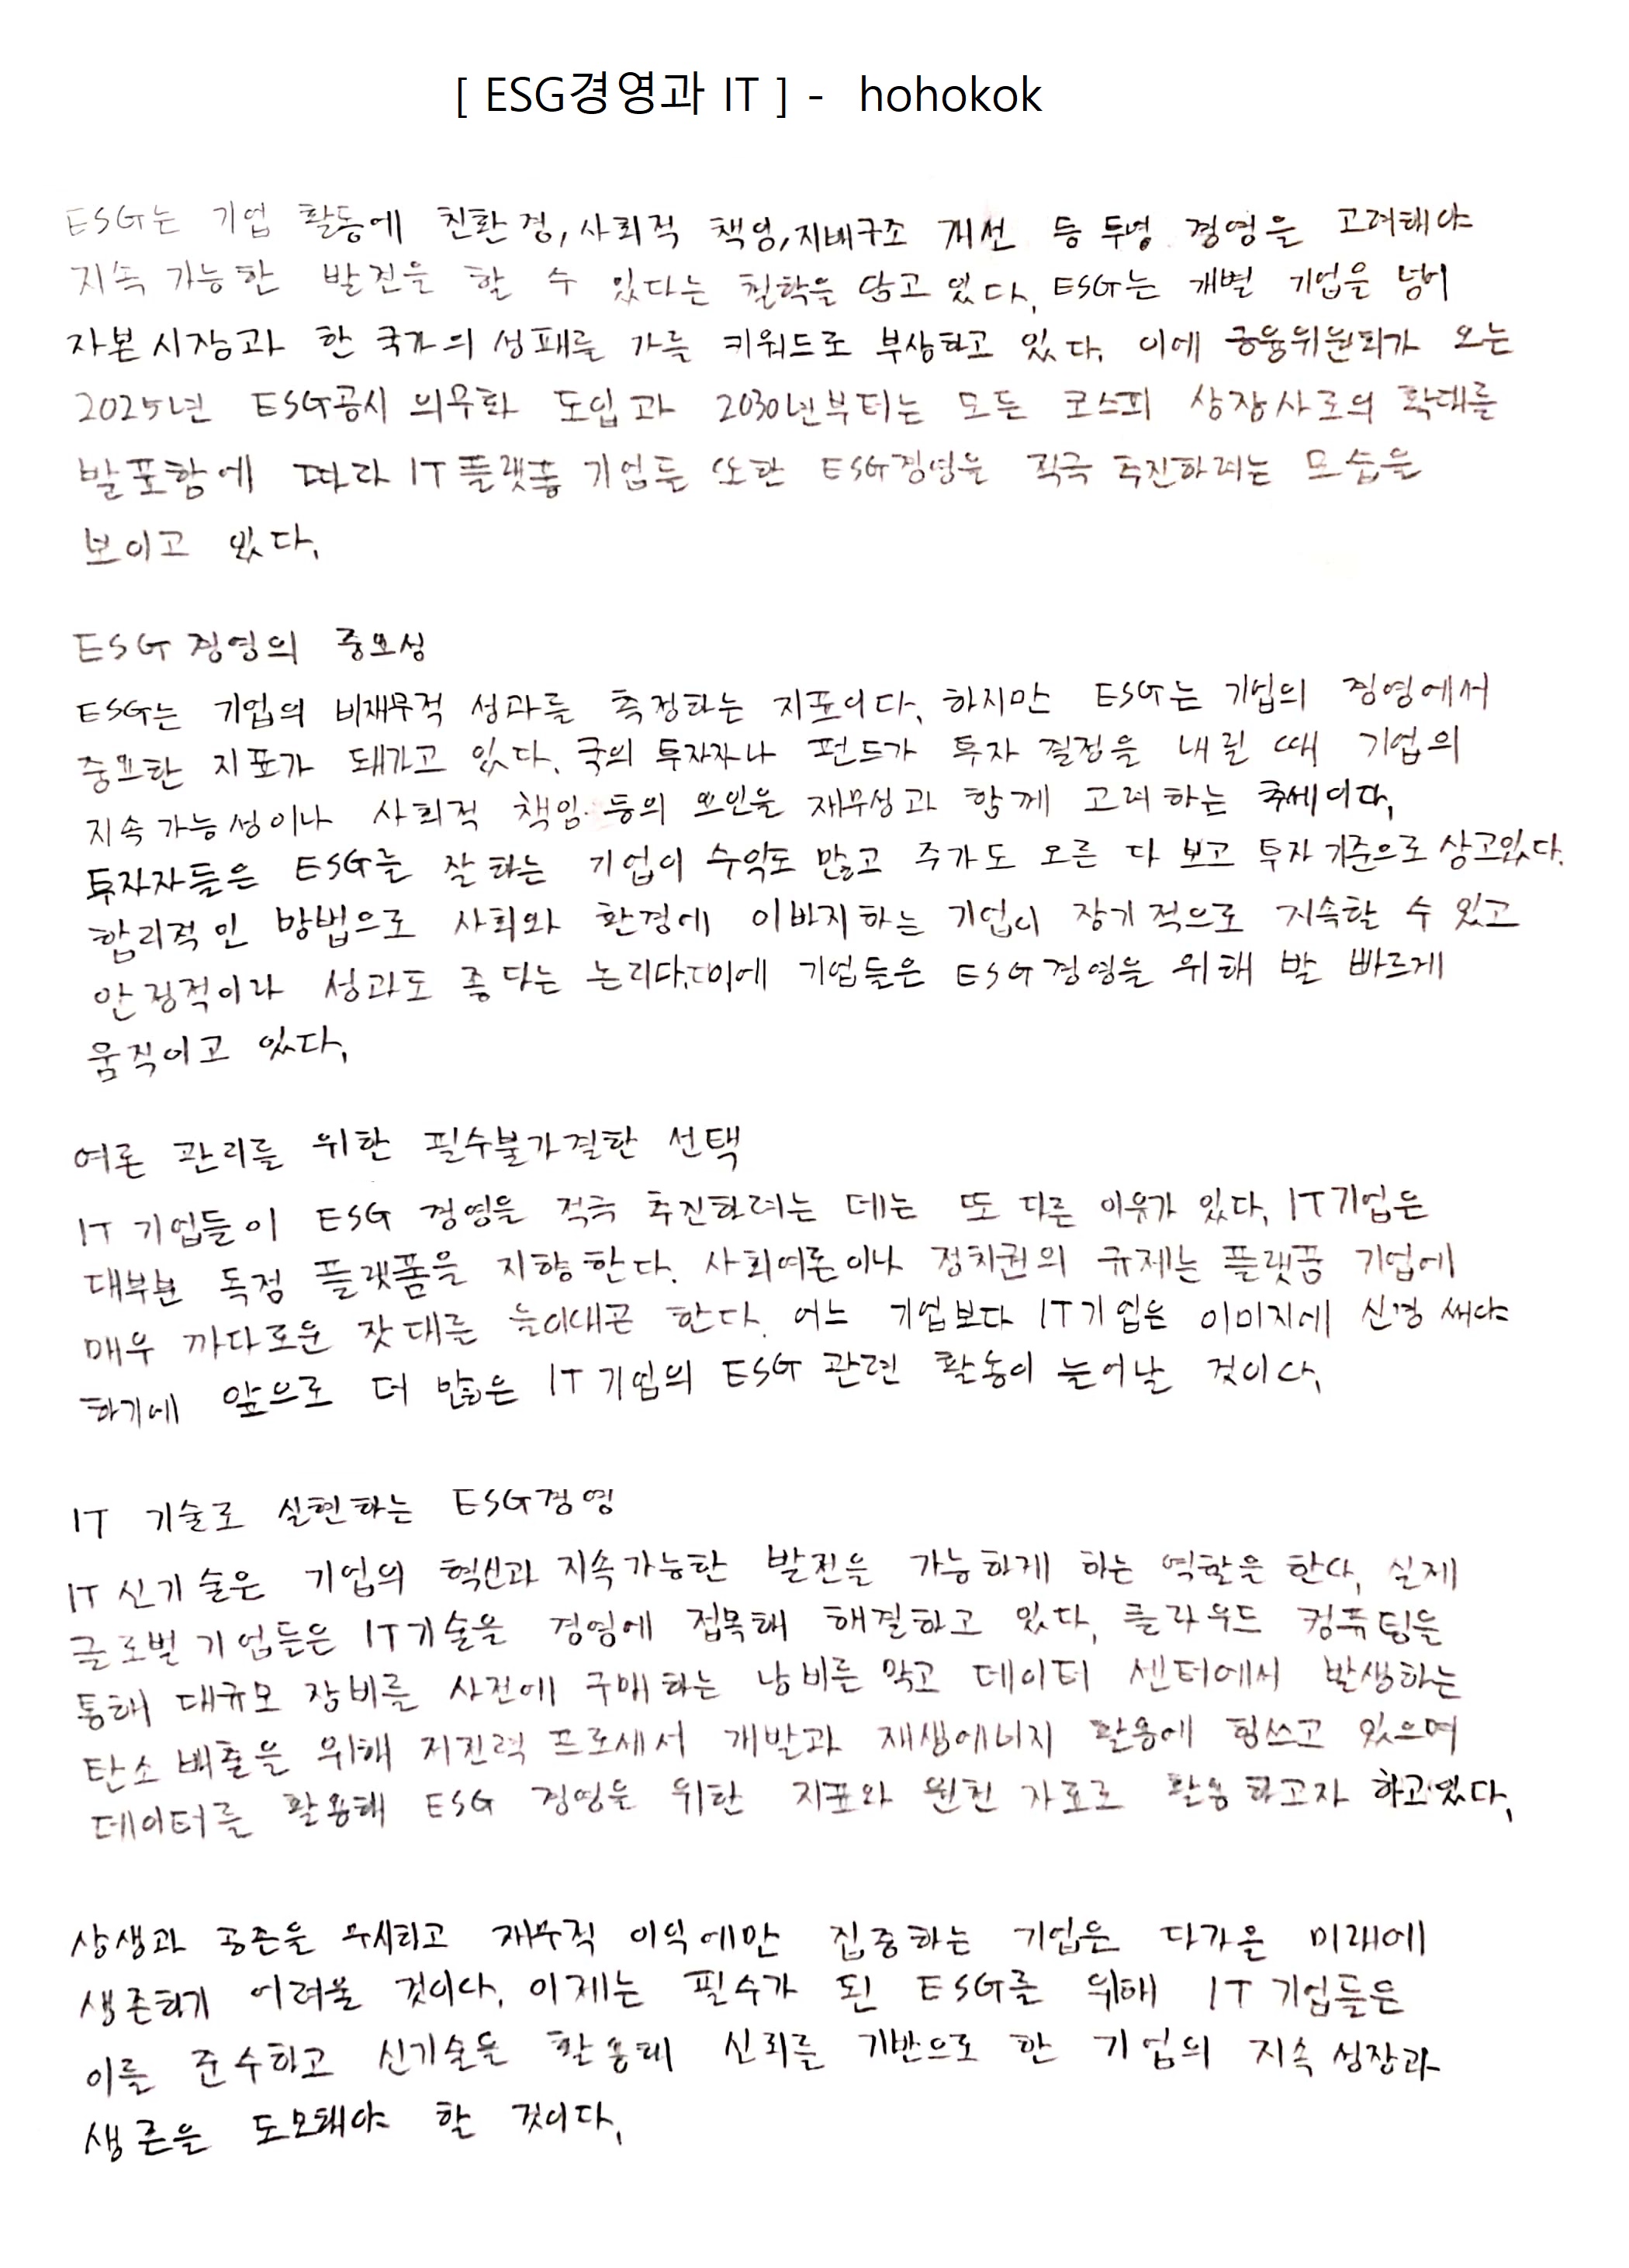 [ ESG경영과 IT ] - hohokok
ESG는 기업 활동에 친환경, 사회적 책임, 지배구조 개선 등 투명 경영을 고려해야
지속 가능한 발전을 할 수 있다는 철학을 담고 있다. ESG는 개별 기업을 넘어
자본시장과 한 국가의 성패를 가를 키워드로 부상하고 있다. 이에 금융위원회가 오는
2025년 ESG공시 의무화 도입과 2030년부터는 모든 코스피 상장사로의 확대를
발표함에 따라 IT플랫폼 기업들 또한 ESG경영을 적극 추진하려는 모습을
보이고 있다.
ESG 경영의 중요성
ESG는 기업의 비재무적 성과를 측정하는 지표이다. 하지만 ESG는 기업의 경영에서
중요한 지표가 돼가고 있다. 국의 투자자나 펀드가 투자 결정을 내릴 때 기업의
지속가능성이나 사회적 책임 등의 요인을 재무성과 함께 고려하는 추세이다.
투자자들은 ESG를 잘하는 기업이 수익도 많고 주가도 오른 다 보고 투자기준으로 삼고있다.
합리적인 방법으로 사회와 환경에 이바지하는 기업이 장기적으로 지속할 수 있고
안정적이라 성과도 좋다는 논리다. 이에 기업들은 ESG경영을 위해 발 빠르게
움직이고 있다.
여론 관리를 위한 필수불가결한 선택
IT 기업들이 ESG 경영을 적극 추진하려는 데는 또 다른 이유가 있다. IT기업은
대부분 독점 플랫폼을 지향한다. 사회여론이나 정치권의 규제는 플랫폼 기업에
매우 까다로운 잣대를 들이대곤 한다. 어느 기업보다 IT기업은 이미지에 신경 써야
하기에 앞으로 더 많은 IT기업의 ESG 관련 활동이 늘어날 것이다.
IT 기술로 실현하는 ESG경영
IT신기술은 기업의 혁신과 지속가능한 발전을 가능하게 하는 역할을 한다. 실제
글로벌기업들은 IT기술을 경영에 접목해 해결하고 있다. 클라우드 컴퓨팅을
통해 대규모 장비를 사전에 구매하는 낭비를 막고 데이터 센터에서 발생하는
탄소배출을 위해 저전력 프로세서 개발과 재생에너지 활용에 힘쓰고 있으며
데이터를 활용해 ESG 경영을 위한 지표와 원천 자료로 활용하고자 하고있다.
상생과 공존을 무시하고 재무적 이익에만 집중하는 기업은 다가올 미래에
생존하기 어려울 것이다. 이제는 필수가 된 ESG를 위해 IT기업들은
이를 준수하고 신기술을 활용해 신뢰를 기반으로 한 기업의 지속성장과
생존을 도모해야 할 것이다.